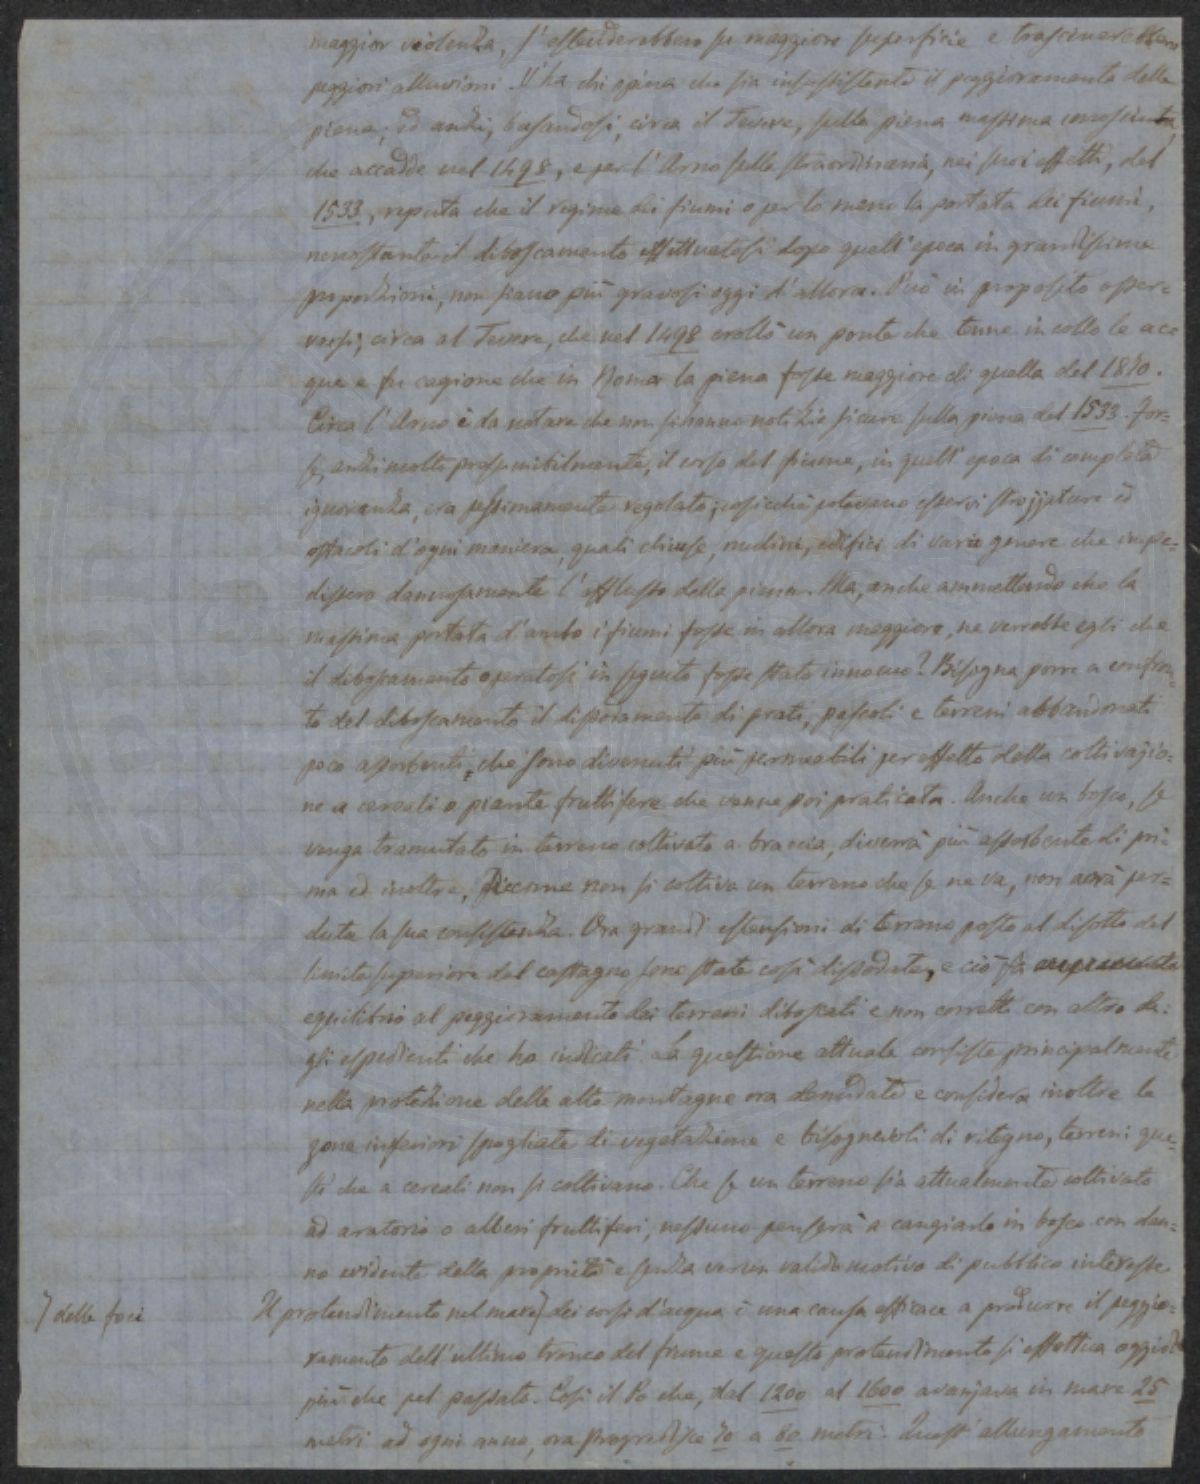 maggior violenza, s'estenderebbero su maggiore superficie e trascinerebbero
peggiori alluvioni. V'ha chi opina che sia insussistente il peggioramento delle
piene; ed anzi, basandosi, circa il Tevere, sulla piena massima conosciuta,
che accadde nel 1498, e per l'Arno sulla straordinaria, nei suoi effetti, del
1533, reputa che il regime dei fiumi o per lo meno la portata dei fiumi,
nonostante il diboscamento effettuatosi dopo quell'epoca in grandissime
proporzioni, non siano più gravosi oggi d'allora. Può in proposito osser=
varsi, circa al Tevere, che nel 1498 crollò un ponte che tenne in collo le ac=
que e fu cagione che in Roma la piena fosse maggiore di quella del 1870.
Circa l'Arno è da notare che non si hanno notizie sicure sulla piena del 1533. For=
se, anzi molto presumibilmente, il corso del fiume, in quell'epoca di completa
ignoranza, era pessimamente regolato; cosicchè potevano esservi strozzature ed
ostacoli d'ogni maniera, quali chiuse, mulini, edifici di vario genere che impe=
dissero dannosamente l'efflusso della piena. Ma, anche ammettendo che la
massima portata d'ambo i fiumi fosse in allora maggiore, ne verrebbe egli che
il diboscamento operatosi in seguito fosse stato innocuo? Bisogna porre a confron=
to del diboscamento il dissodamento di prati, pascoli e terreni abbandonati
poco assorbenti, che sono divenuti più permeabili per effetto della coltivazio=
ne a cereali o piante fruttifere che venne poi praticata. Anche un bosco, se
venga tramutato in terreno coltivato a braccia, diverrà più assorbente di pri=
ma ed inoltre, siccome non si coltiva un terreno che se ne va, non avrà per=
duta la sua consistenza. Ora grandi estensioni di terreno poste al disotto del
limite superiore del castagno sono state così dissodate, e ciò fa
equilibrio al peggioramento dei terreni diboscati e non corretti con altro de=
gli espedienti che ho indicati. La questione attuale consiste principalmente
nella protezione delle alte montagne ora denudate e considera inoltre le
zone inferiori spogliate di vegetazione e bisognevoli di ritegno, terreni que=
sti che a cereali non si coltivano. Che se un terreno sia attualmente coltivato
ad aratorio o alberi fruttiferi, nessuno penserà a cangiarlo in bosco con dan=
no evidente della proprietà e senza verun valido motivo di pubblico interesse.
] delle foci
Il protendimento nel mare] dei corsi d'acqua è una causa efficace a produrre il peggio=
ramento dell'ultimo tronco del fiume e questo protendimento si effettua oggidì
più che pel passato. Così il Po che, dal 1200 al 1600 avanzava in mare 25
metri ad ogni anno, ora progredisce 70 a 80 metri. Quest'allungamento